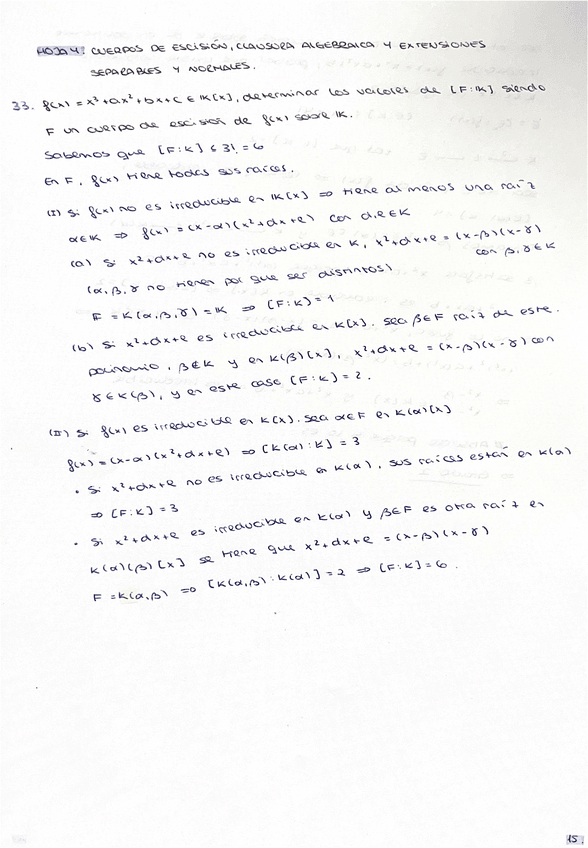 HOJA 4: CUERPOS DE ESCISIÓN, CLAUSURA ALGEBRAICA Y EXTENSIONES
SEPARABLES Y NORMALES.
33. f(x) = x³ + ax² + bx + c ∈ K[x], determinar los valores de [F:K] siendo
F un cuerpo de escisión de f(x) sobre K.
Sabemos que [F:K] ≤ 3! = 6
En F, f(x) tiene todas sus raíces.
(I) Si f(x) no es irreducible en K[x] ⇒ tiene al menos una raíz
α∈K ⇒ f(x) = (x-α)(x²+dx+e) con d,e∈K
(a) Si x²+dx+e no es irreducible en K, x²+dx+e = (x-β)(x-γ)
con β,γ∈K
(α,β,γ no tienen por que ser distintos)
F = K(α,β,γ) = K ⇒ [F:K] = 1
(b) Si x²+dx+e es irreducible en K[x]. Sea β∈F raíz de este
polinomio, β∉K y en K(β)[x], x²+dx+e = (x-β)(x-γ) con
γ∈K(β), y en este caso [F:K] = 2.
(II) Si f(x) es irreducible en K[x]. Sea α∈F en K(α)[x]
f(x) = (x-α)(x²+dx+e) ⇒ [K(α):K] = 3
• Si x²+dx+e no es irreducible en K(α), sus raíces están en K(α)
⇒ [F:K] = 3
• Si x²+dx+e es irreducible en K(α) y β∈F es otra raíz en
K(α)(β)[x] se tiene que x²+dx+e = (x-β)(x-γ)
F = K(α,β) ⇒ [K(α,β):K(α)] = 2 ⇒ [F:K] = 6.
15